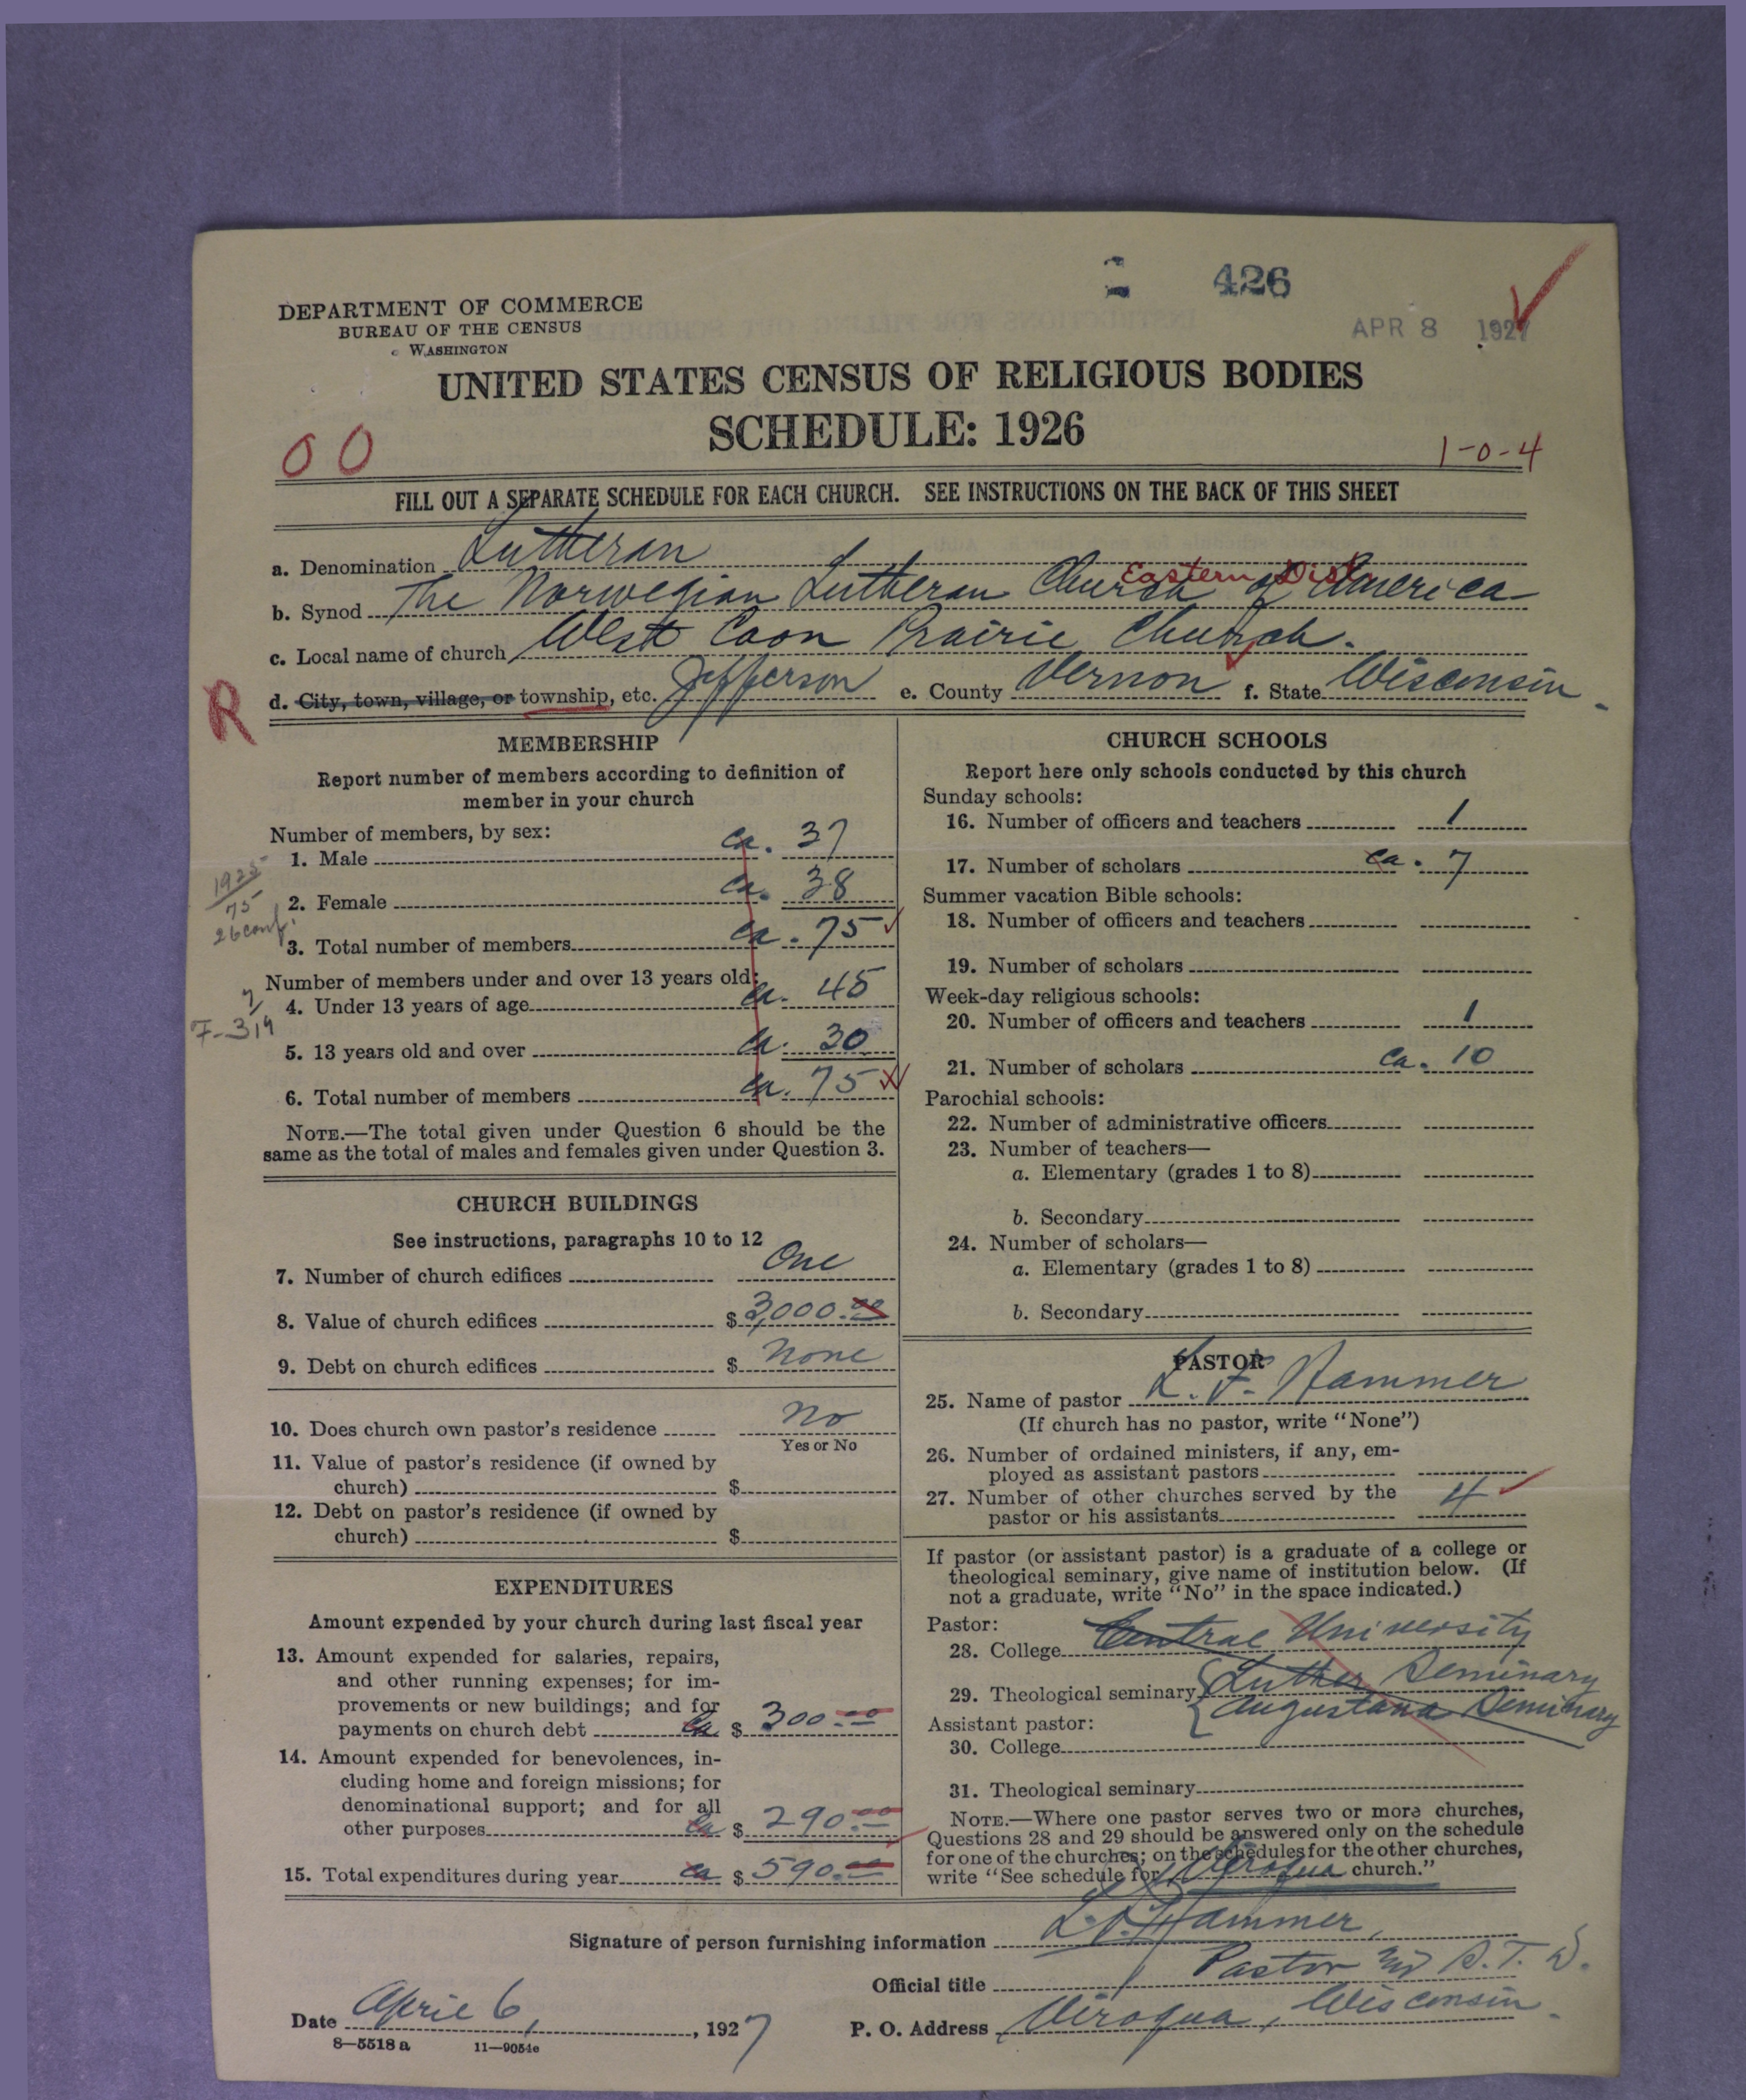 426
APR 8 1927
DEPARTMENT OF COMMERCE
BUREAU OF THE CENSUS
WASHINGTON
UNITED STATES CENSUS OF RELIGIOUS BODIES
SCHEDULE: 1926
00
1-0-4
FILL OUT A SEPARATE SCHEDULE FOR EACH CHURCH. SEE INSTRUCTIONS ON THE BACK OF THIS SHEET
a. Denomination Lutheran
Eastern Dist
b. Synod The Norwegian Lutheran Church of America
c. Local name of church West Coon Prairie Church.
R
d. City, town, village, or township, etc. Jefferson e. County Vernon f. State Wisconsin.
MEMBERSHIP
Report number of members according to definition of
member in your church
Number of members, by sex:
1. Male ca. 37
1925
75
26 conf.
2. Female ca. 38
3. Total number of members ca. 75
Number of members under and over 13 years old:
4. Under 13 years of age ca. 45
5. 13 years old and over ca. 30
6. Total number of members ca. 75
NOTE.—The total given under Question 6 should be the
same as the total of males and females given under Question 3.
CHURCH BUILDINGS
See instructions, paragraphs 10 to 12
7. Number of church edifices One
8. Value of church edifices $ 3,000.00
9. Debt on church edifices $ None
10. Does church own pastor's residence No
Yes or No
11. Value of pastor's residence (if owned by
church) $
12. Debt on pastor's residence (if owned by
church) $
EXPENDITURES
Amount expended by your church during last fiscal year
13. Amount expended for salaries, repairs,
and other running expenses; for im-
provements or new buildings; and for
payments on church debt ca $ 300.00
14. Amount expended for benevolences, in-
cluding home and foreign missions; for
denominational support; and for all
other purposes ca $ 290.00
15. Total expenditures during year ca $ 590.00
CHURCH SCHOOLS
Report here only schools conducted by this church
Sunday schools:
16. Number of officers and teachers 1
17. Number of scholars ca. 7
Summer vacation Bible schools:
18. Number of officers and teachers
19. Number of scholars
Week-day religious schools:
20. Number of officers and teachers 1
21. Number of scholars ca. 10
Parochial schools:
22. Number of administrative officers
23. Number of teachers—
a. Elementary (grades 1 to 8)
b. Secondary
24. Number of scholars—
a. Elementary (grades 1 to 8)
b. Secondary
PASTOR
25. Name of pastor L. F. Hammer
(If church has no pastor, write "None")
26. Number of ordained ministers, if any, em-
ployed as assistant pastors
27. Number of other churches served by the
pastor or his assistants 4
If pastor (or assistant pastor) is a graduate of a college or
theological seminary, give name of institution below. (If
not a graduate, write "No" in the space indicated.)
Pastor:
28. College Central University
29. Theological seminary Luther Seminary
Augustana Seminary
Assistant pastor:
30. College
31. Theological seminary
NOTE.—Where one pastor serves two or more churches,
Questions 28 and 29 should be answered only on the schedule
for one of the churches; on the schedules for the other churches,
write "See schedule for Viroqua church."
Signature of person furnishing information L. F. Hammer,
Official title Pastor
Date April 6, 1927 P. O. Address Viroqua, Wisconsin.
8—5518 a 11—9054e